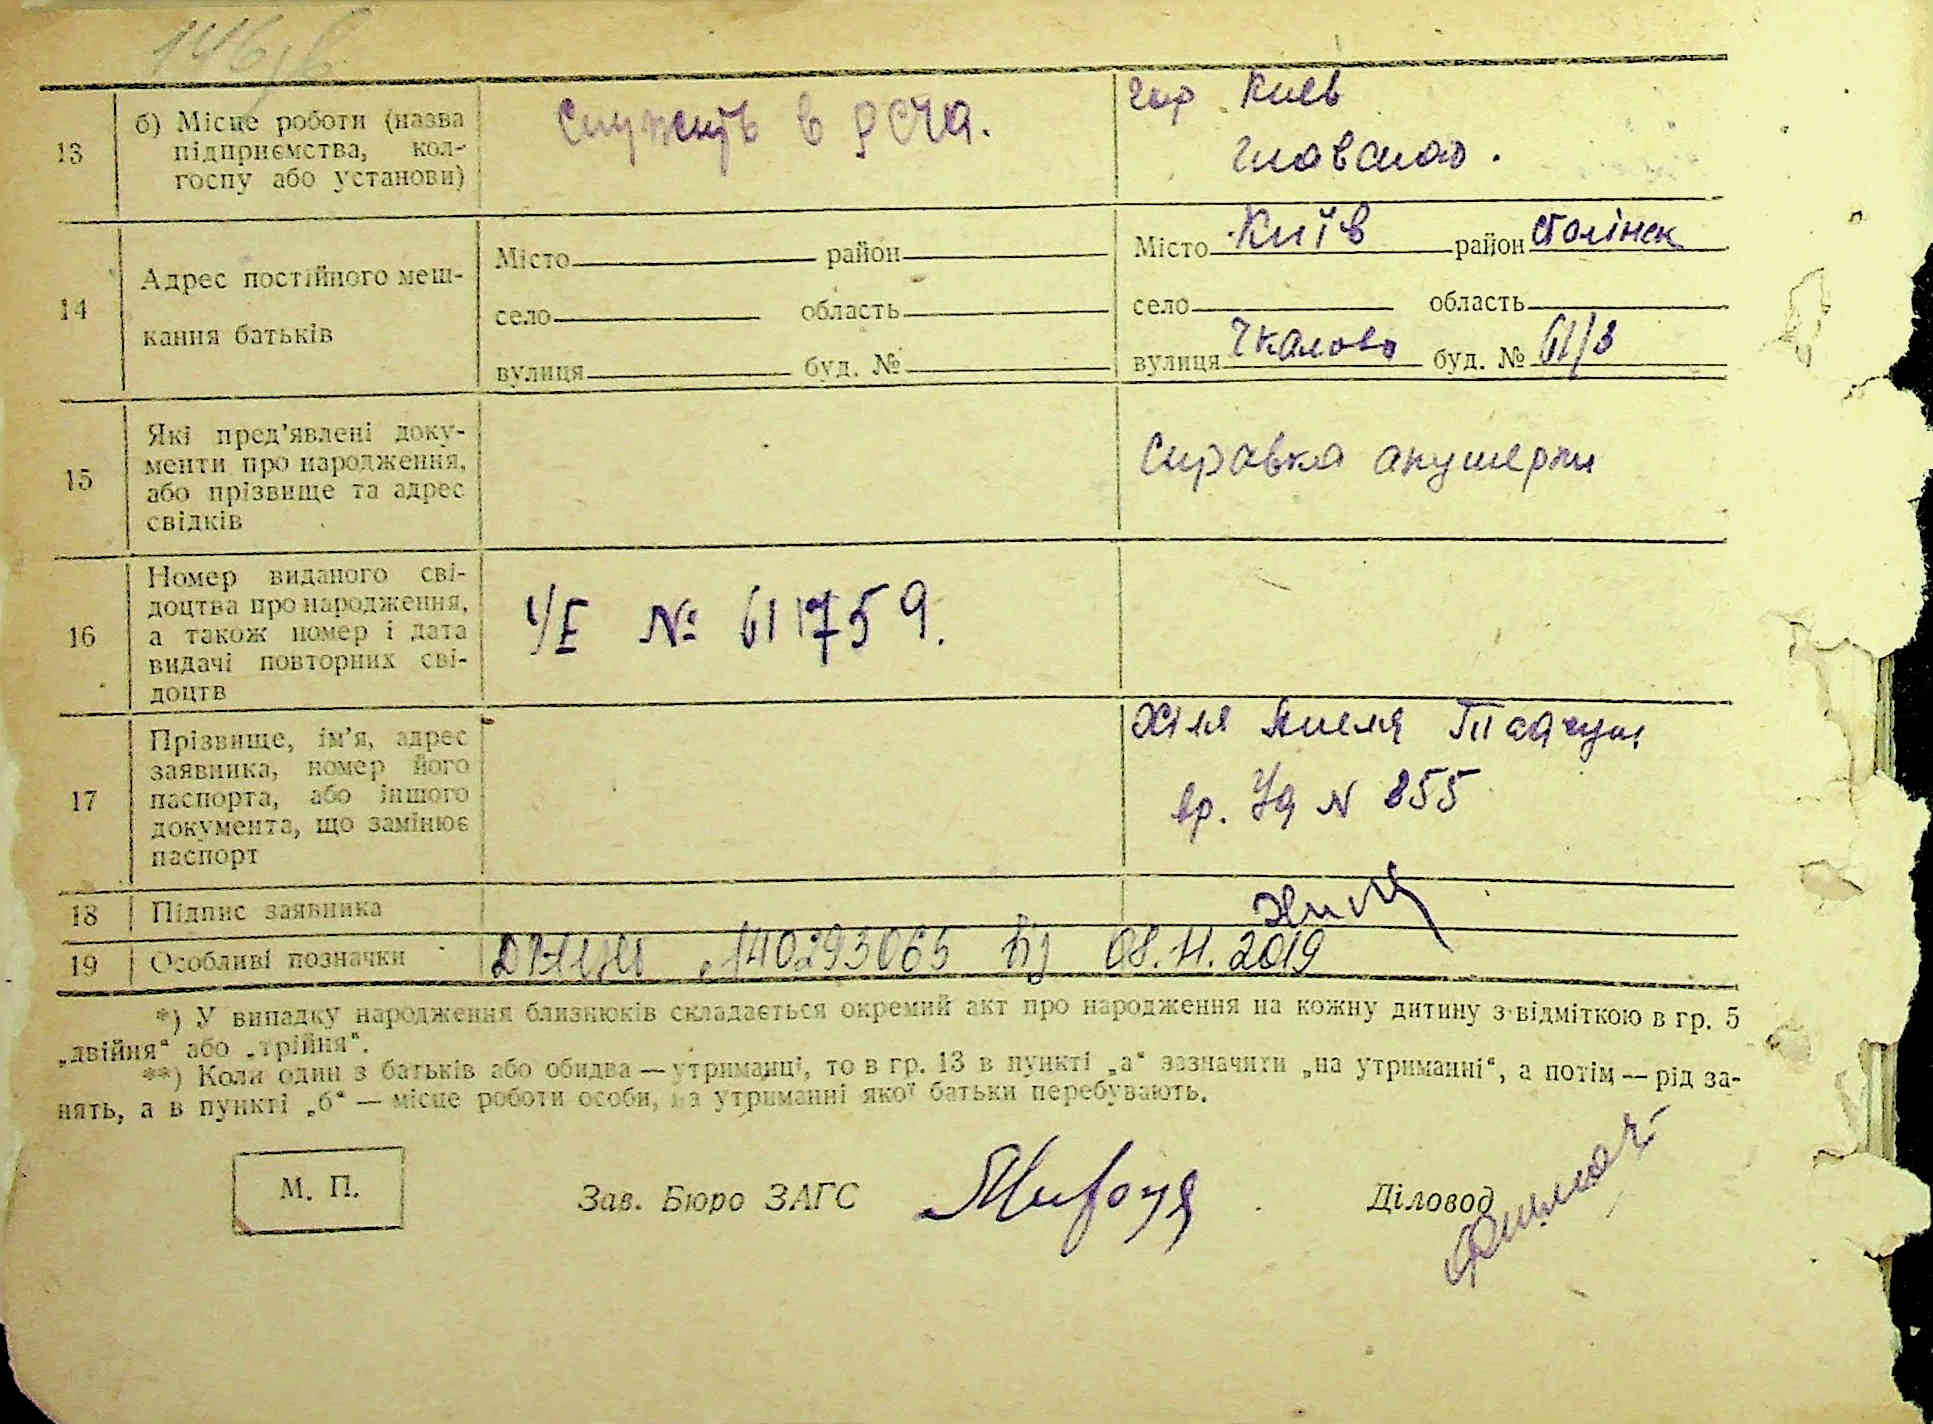 13
б) Місце роботи (назва
підприємства, кол-
госпу або установи)
Служить в РСЧА.
гор Киев
14
Адрес постійного меш-
кання батьків
Місто район
село область
вулиця буд. №
Місто Київ район Сталінск
село область
вулиця Чкалова буд. № 61/3
15
Які пред'явлені доку-
менти про народження,
або прізвище та адрес
свідків
Справка акушерки
16
Номер виданого сві-
доцтва про народження,
а також номер і дата
видачі повторних сві-
доцтв
№ 611759.
17
Прізвище, ім'я, адрес
заявника, номер його
паспорта, або іншого
документа, що замінює
паспорт
вр. Уд N 855
18
Підпис заявника
19
Особливі позначки
140293065 від 08.11.2019
*) У випадку народження близнюків складається окремий акт про народження на кожну дитину з відміткою в гр. 5
„двійня“ або „трійня“.
**) Коли один з батьків або обидва — утриманці, то в гр. 13 в пункті „а“ зазначити „на утриманні“, а потім — рід за-
нять, а в пункті „б“ — місце роботи особи, на утриманні якої батьки перебувають.
М. П.
Зав. Бюро ЗАГС
Діловод